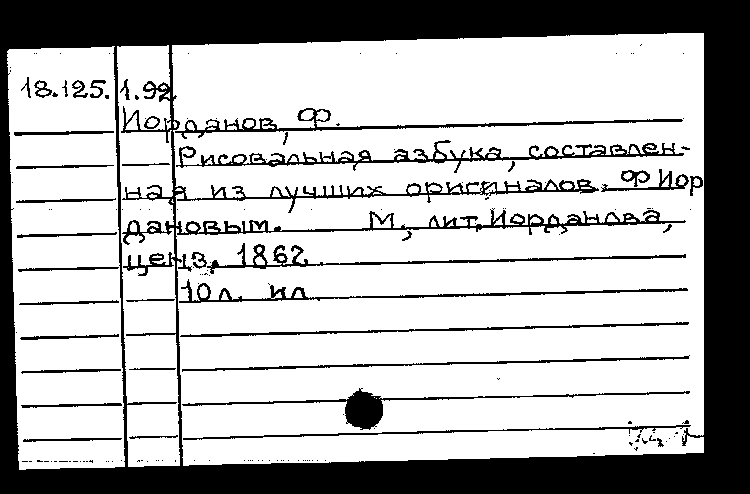 18.125.1.92
Иорданов, Ф.
Рисовальная азбука, составлен-
ная из лучших оригиналов. Ф Иор
дановым. М., лит. Иорданова,
ценз. 1862.
10 л. ил.